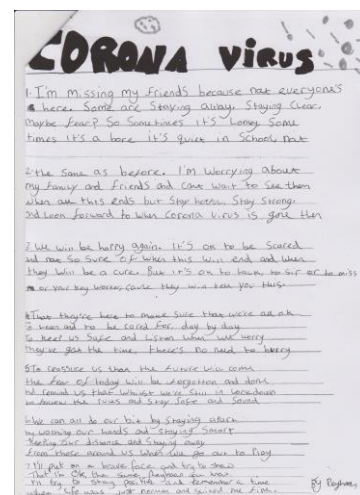 CORONA VIRUS
1. I'm missing my friends because not everyone's
here. Some are Staying away. Staying Clear,
maybe fear? So Sometimes It's Loney Some
times It's a bore it's quiet in School not
2 the Same as before. I'm Worrying about
my family and friends and cant wait to See them
when all this ends but Stay home, Stay Strong,
and Look forward to when Corona virus is gone then
3 We will be happy again. It's ok to be Scared
and not So Sure of when this will end and when
they will be a cure. But it's ok to to Sir or to miss
or your key worker, cause they will tell you this.
4 That they're here to make Sure that we're all ok
to and to be cared for day by day
to keep us Safe and Listen when we worry
They've got the time, there's no need to hurry
5 To reassure us than the future will come
the fear of today will be forgotten and done
and remind us that whilst we're Still in Lockdown
to the rules and Stay Safe and Sound
6 We can all do our bit by Staying apart
by washing our hands and staying Smart
Keeping our distance and Staying away
From those around us when we go out to Play
7 I'll put on a brave face and try to show
That im OK,
I'll try to stay positive and remember a time
when life was just normal and
By